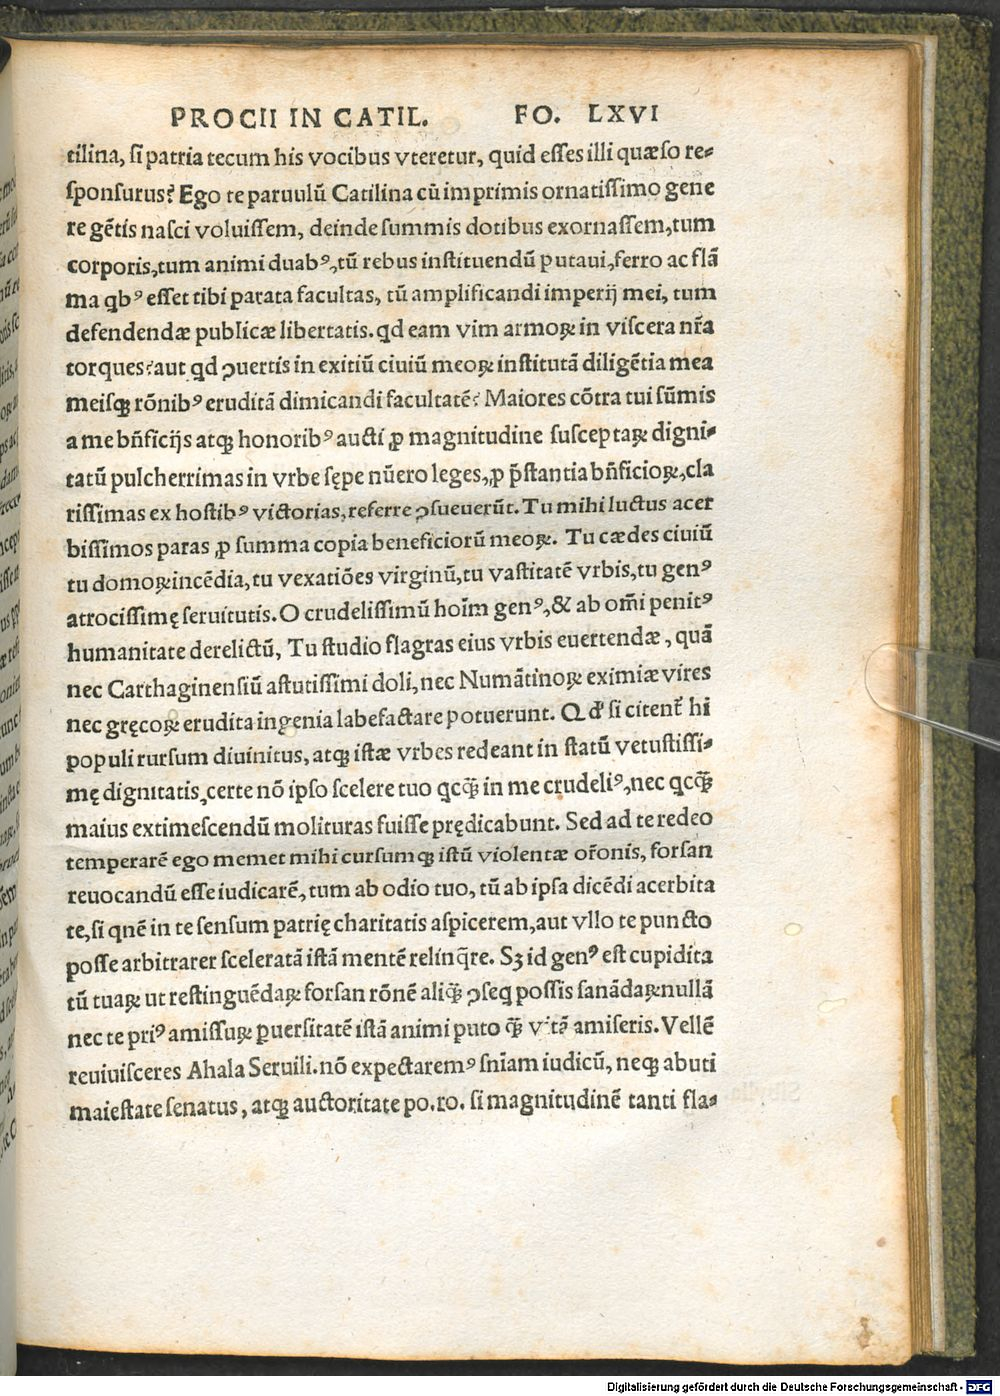 PROCII IN CATIL. FO. LXVI
tilina, ſi patria tecum his vocibus vteretur, quid eſſes illi quæſo re⸗
ſponſurus? Ego te paruulū Catilina cū imprimis ornatiſſimo gene
re gētis naſci voluiſſem, deinde ſummis dotibus exornaſſem, tum
corporis, tum animi duabꝰ, tū rebus inſtituendū putaui, ferro ac flā
ma qbꝰ eſſet tibi parata facultas, tū amplificandi imperij mei, tum
defendendæ publicæ libertatis. qd eam vim armoꝝ in viſcera nr̄a
torques? aut qd ꝯuertis in exitiū ciuiū meoꝝ inſtitutā diligētia mea
meiſqꝫ rōnibꝰ eruditā dimicandi facultatē? Maiores cōtra tui ſūmis
a me bn̄ficijs atqꝫ honoribꝰ aucti ꝓ magnitudine ſuſceptaꝝ digni⸗
tatū pulcherrimas in vrbe ſępe nūero leges, ꝓ p̄ſtantia bn̄ficioꝝ, cla
riſſimas ex hoſtibꝰ victorias, referre ꝯſueuerūt. Tu mihi luctus acer
biſſimos paras ꝓ ſumma copia beneficiorū meoꝝ. Tu cædes ciuiū
tu domoꝝ incēdia, tu vexatiōes virginū, tu vaſtitatē vrbis, tu genꝰ
atrociſſimę ſeruitutis. O crudeliſſimū hoīm genꝰ, & ab om̄i penitꝰ
humanitate derelictū, Tu ſtudio flagras eius vrbis euertendæ, quā
nec Carthaginenſiū aſtutiſſimi doli, nec Numātinoꝝ eximiæ vires
nec gręcoꝝ erudita ingenia labefactare potuerunt. Qd' ſi citent᷑ hi
populi rurſum diuinitus, atqꝫ iſtæ vrbes redeant in ſtatū vetuſtiſſi⸗
mę dignitatis, certe nō ipſo ſcelere tuo qcq̄ꝫ in me crudeliꝰ, nec qcq̄ꝫ
maius extimeſcendū molituras fuiſſe prędicabunt. Sed ad te redeo
temperarē ego memet mihi curſumqꝫ iſtū violentæ or̄onis, forſan
reuocandū eſſe iudicarē, tum ab odio tuo, tū ab ipſa dicēdi acerbita
te, ſi qnē in te ſenſum patrię charitatis aſpicerem, aut vllo te puncto
poſſe arbitrarer ſceleratā iſtā mentē relinq̄re. Sꝫ id genꝰ eſt cupidita
tū tuaꝝ ut reſtinguēdaꝝ forſan rōnē aliq̄ꝫ ꝯſeq poſſis ſanādaꝝ nullā
nec te priꝰ amiſſuꝝ ꝑuerſitatē iſtā animi puto q̄ꝫ vitā amiſeris. Vellē
reuiuiſceres Ahala Seruili. nō expectaremꝰ ſn̄iam iudicū, neqꝫ abuti
maieſtate ſenatus, atqꝫ auctoritate po. ro. ſi magnitudinē tanti fla⸗
Digitalisierung gefördert durch die Deutsche Forschungsgemeinschaft - DFG